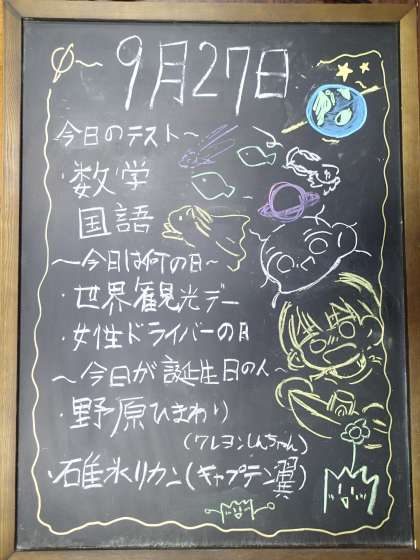 9月27日
今日のテスト～
・数学
国語
～今日は何の日～
・世界観光デー
・女性ドライバーの日
～今日が誕生日の人～
・野原ひまわり
(クレヨンしんちゃん)
・碓氷リカン(キャプテン翼)